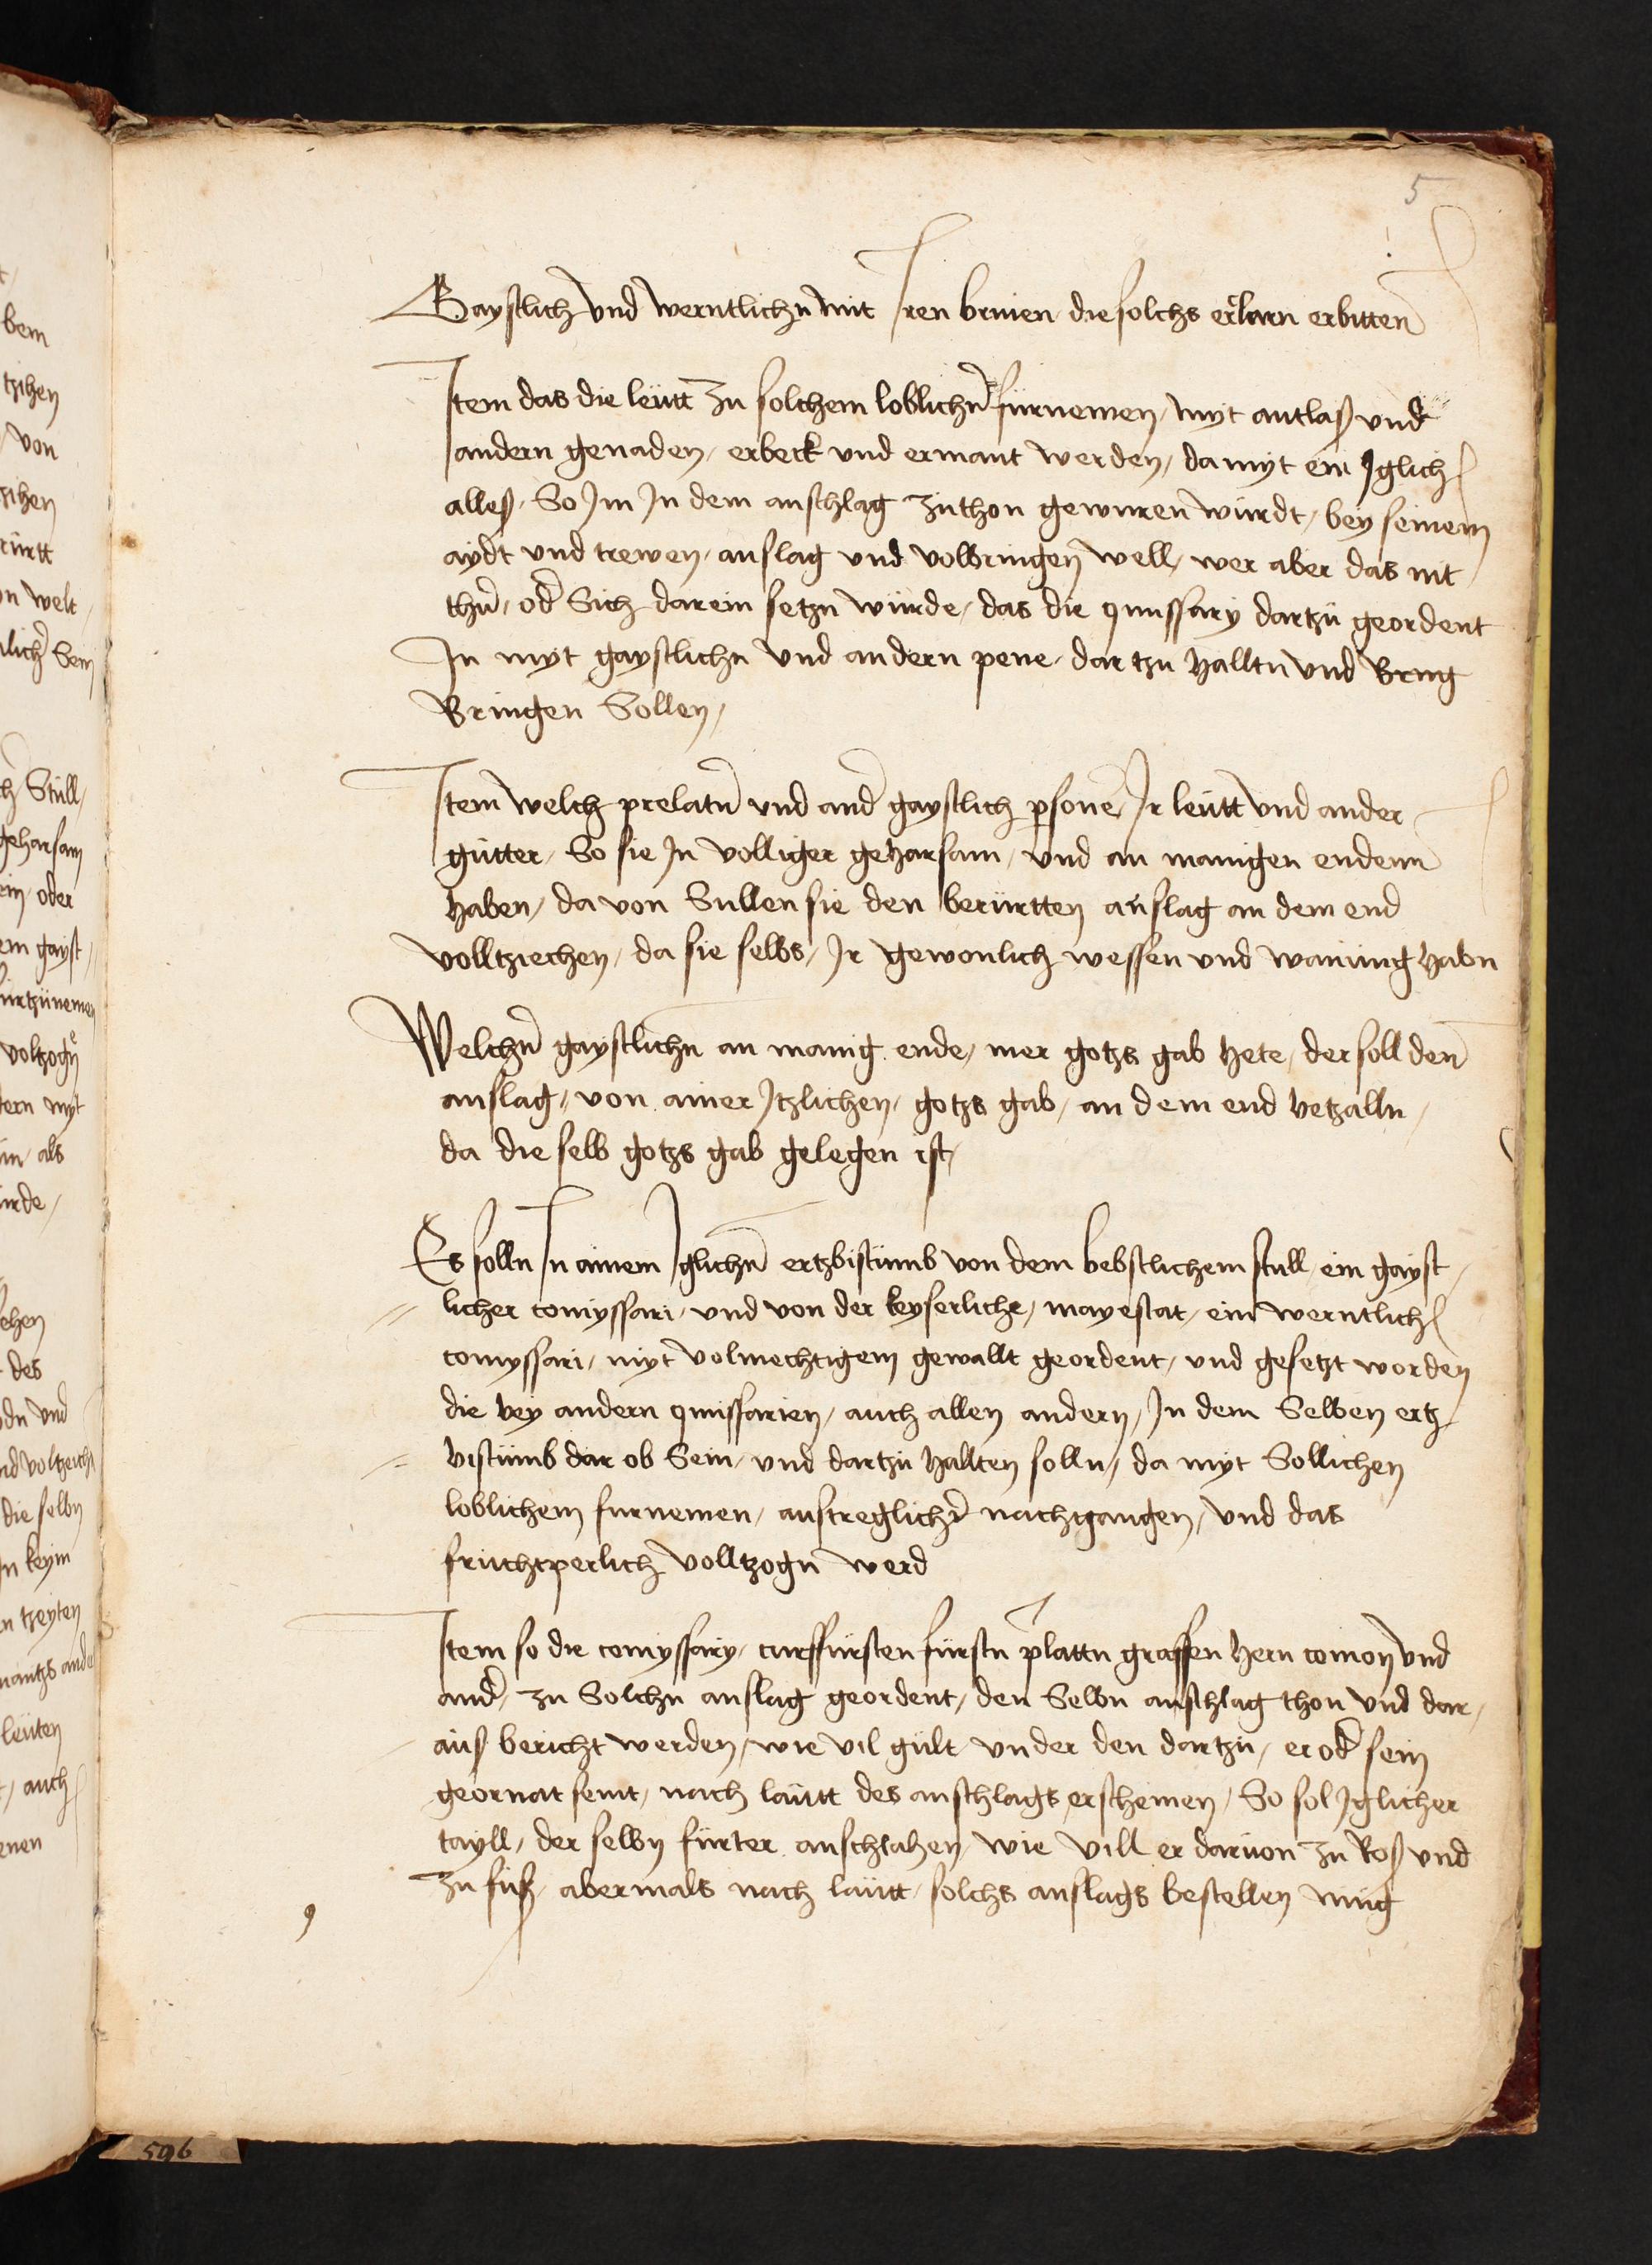 5
Gaystlich und werntlichn mit Iren brieuen die solchs erclarn erbitten
Item das die leütt zu solchem loblichn fürnemen, myt antlaß und
andern genaden, erbeck und ermant werden, da myt ein Iglich
alles, So Im In dem anschlag zuthon gewuren würdt, bey seinem
aydt und trewen, anslag und volbringen well, wer aber das nit
thu, od Sich darein setzn würde, das die qmissary dartzü geordent
In myt gaystlichn und andern pene, dar tzu halltn und Bring
Bringen Sollen,
Item welch prelatn und and gaystlich psone, Ir leütt und ander
gütter, So sie In volliger geharsam, und an manigen endenn
haben, da von Sullen sie den berürtten anslag an dem end
volltziechen, da sie selbs, Ir gewonlich wessen und wanüng habn
Welchn gaystlichn an manig ende, mer gotzs gab hete, der soll den
anslag, von ainer Itzlichen, gotzs gab, an dem end betzalln,
da die selb gotzs gab gelegen ist,
Es solln In ainem Iglichn ertzbistumb von dem bebstlichem stull, ein gayst,
licher comyssari, und von der keyserliche, mayestat, ein werntlich
comyssari, myt volmechtigem gewallt geordent, und gesetzt worden
die bey andern qmissarien, auch allen andern, In dem Selben ertz
bistümb dar ob Sein, und dartzü hallten solln, da myt Sollichen
loblichem furnemen, austreglicher nachgangen, und das
früchtperlich volltzogn werd
Item so die comyssary, curffürsten fürstn plattn graffen hern comon und
and, zu Solchn anslag geordent, den Selbn anschlag thon und dar,
auß bericht werden, wie vil gült under den dartzü, er od sein
geornat seint, nach lautt des anschlags erscheinen, So sol Iglicher
tayll, der selbn fürter anschlahen, wie vill er daruon zu Roß und
zu fuß, abermals nach lautt, solchs anslags bestellen müg
596